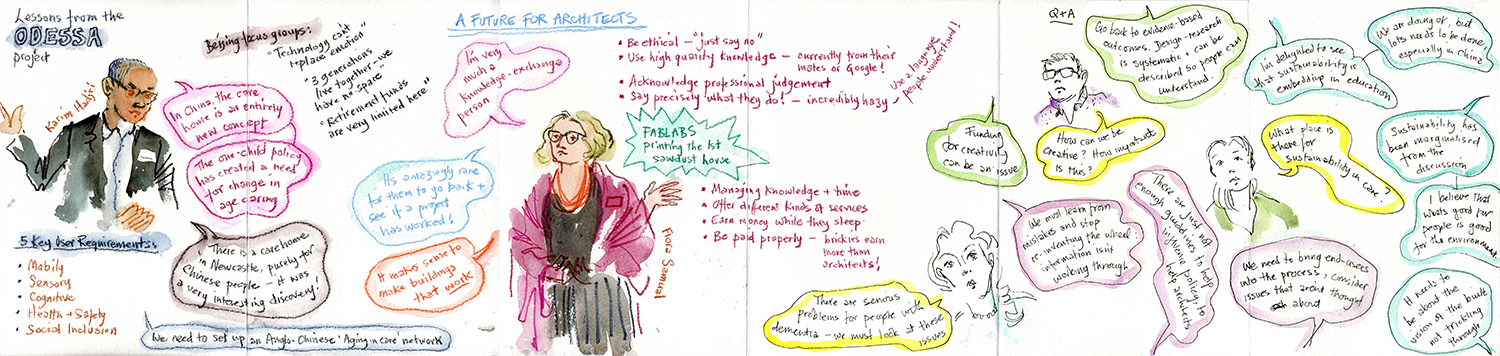 Lessons from the
ODESSA
project
Karim Hadjri
5 Key User Requirements:
• Mobility
• Sensory
• Cognitive
• Health + Safety
• Social Inclusion
Beijing focus groups:
"Technology can't
replace emotion"
"3 generations
live together - we
have no spare"
"Retirement funds
are very limited here"
In China, the care
home is an entirely
new concept
The one-child policy
has created a need
for change in
age caring
There is a care home
in Newcastle, purely for
Chinese people - it was
a very interesting discovery!
We need to set up an Anglo-Chinese 'Aging in care' network
A FUTURE FOR ARCHITECTS
I'm very
much a
knowledge-exchange
person
It's amazingly rare
for them to go back +
see if a project
has worked!
It makes sense to
make buildings
that work
Flora Samual
• Be ethical - "just say no"
• Use high quality knowledge - currently from their
mates or Google!
• Acknowledge professional judgement
• Say precisely what they do! - incredibly hazy -
use a language
people understand!
FABLABS
printing the 1st
sawdust house
• Managing knowledge + time
• Offer different kinds of services
• Earn money while they sleep
• Be paid properly - brickies earn
more than
architects!
There are serious
problems for people with
dementia - we must look at these
issues
Funding
for creativity
can be an issue
Q+A
Go back to evidence-based
outcomes. Design-research
is systematic + can be
described so people can
understand.
How can we be
creative? How important
is this?
We must learn from
mistakes and stop
re-inventing the wheel
information isn't
walking through
There are just not
enough guidelines to help
inform policy, to
help architects
I'm delighted to see
that sustainability is
embedding in education
We are doing of, but
lots needs to be done
especially in China
What place is
there for
sustainability in care?
Sustainability has
been marginalised
from the
discussion
I believe that
what's good for
people is good
for the environment
We need to bring end-users
into the process, consider
issues that aren't thought
about
It needs to
be about the
vision of the built
not trickling
through